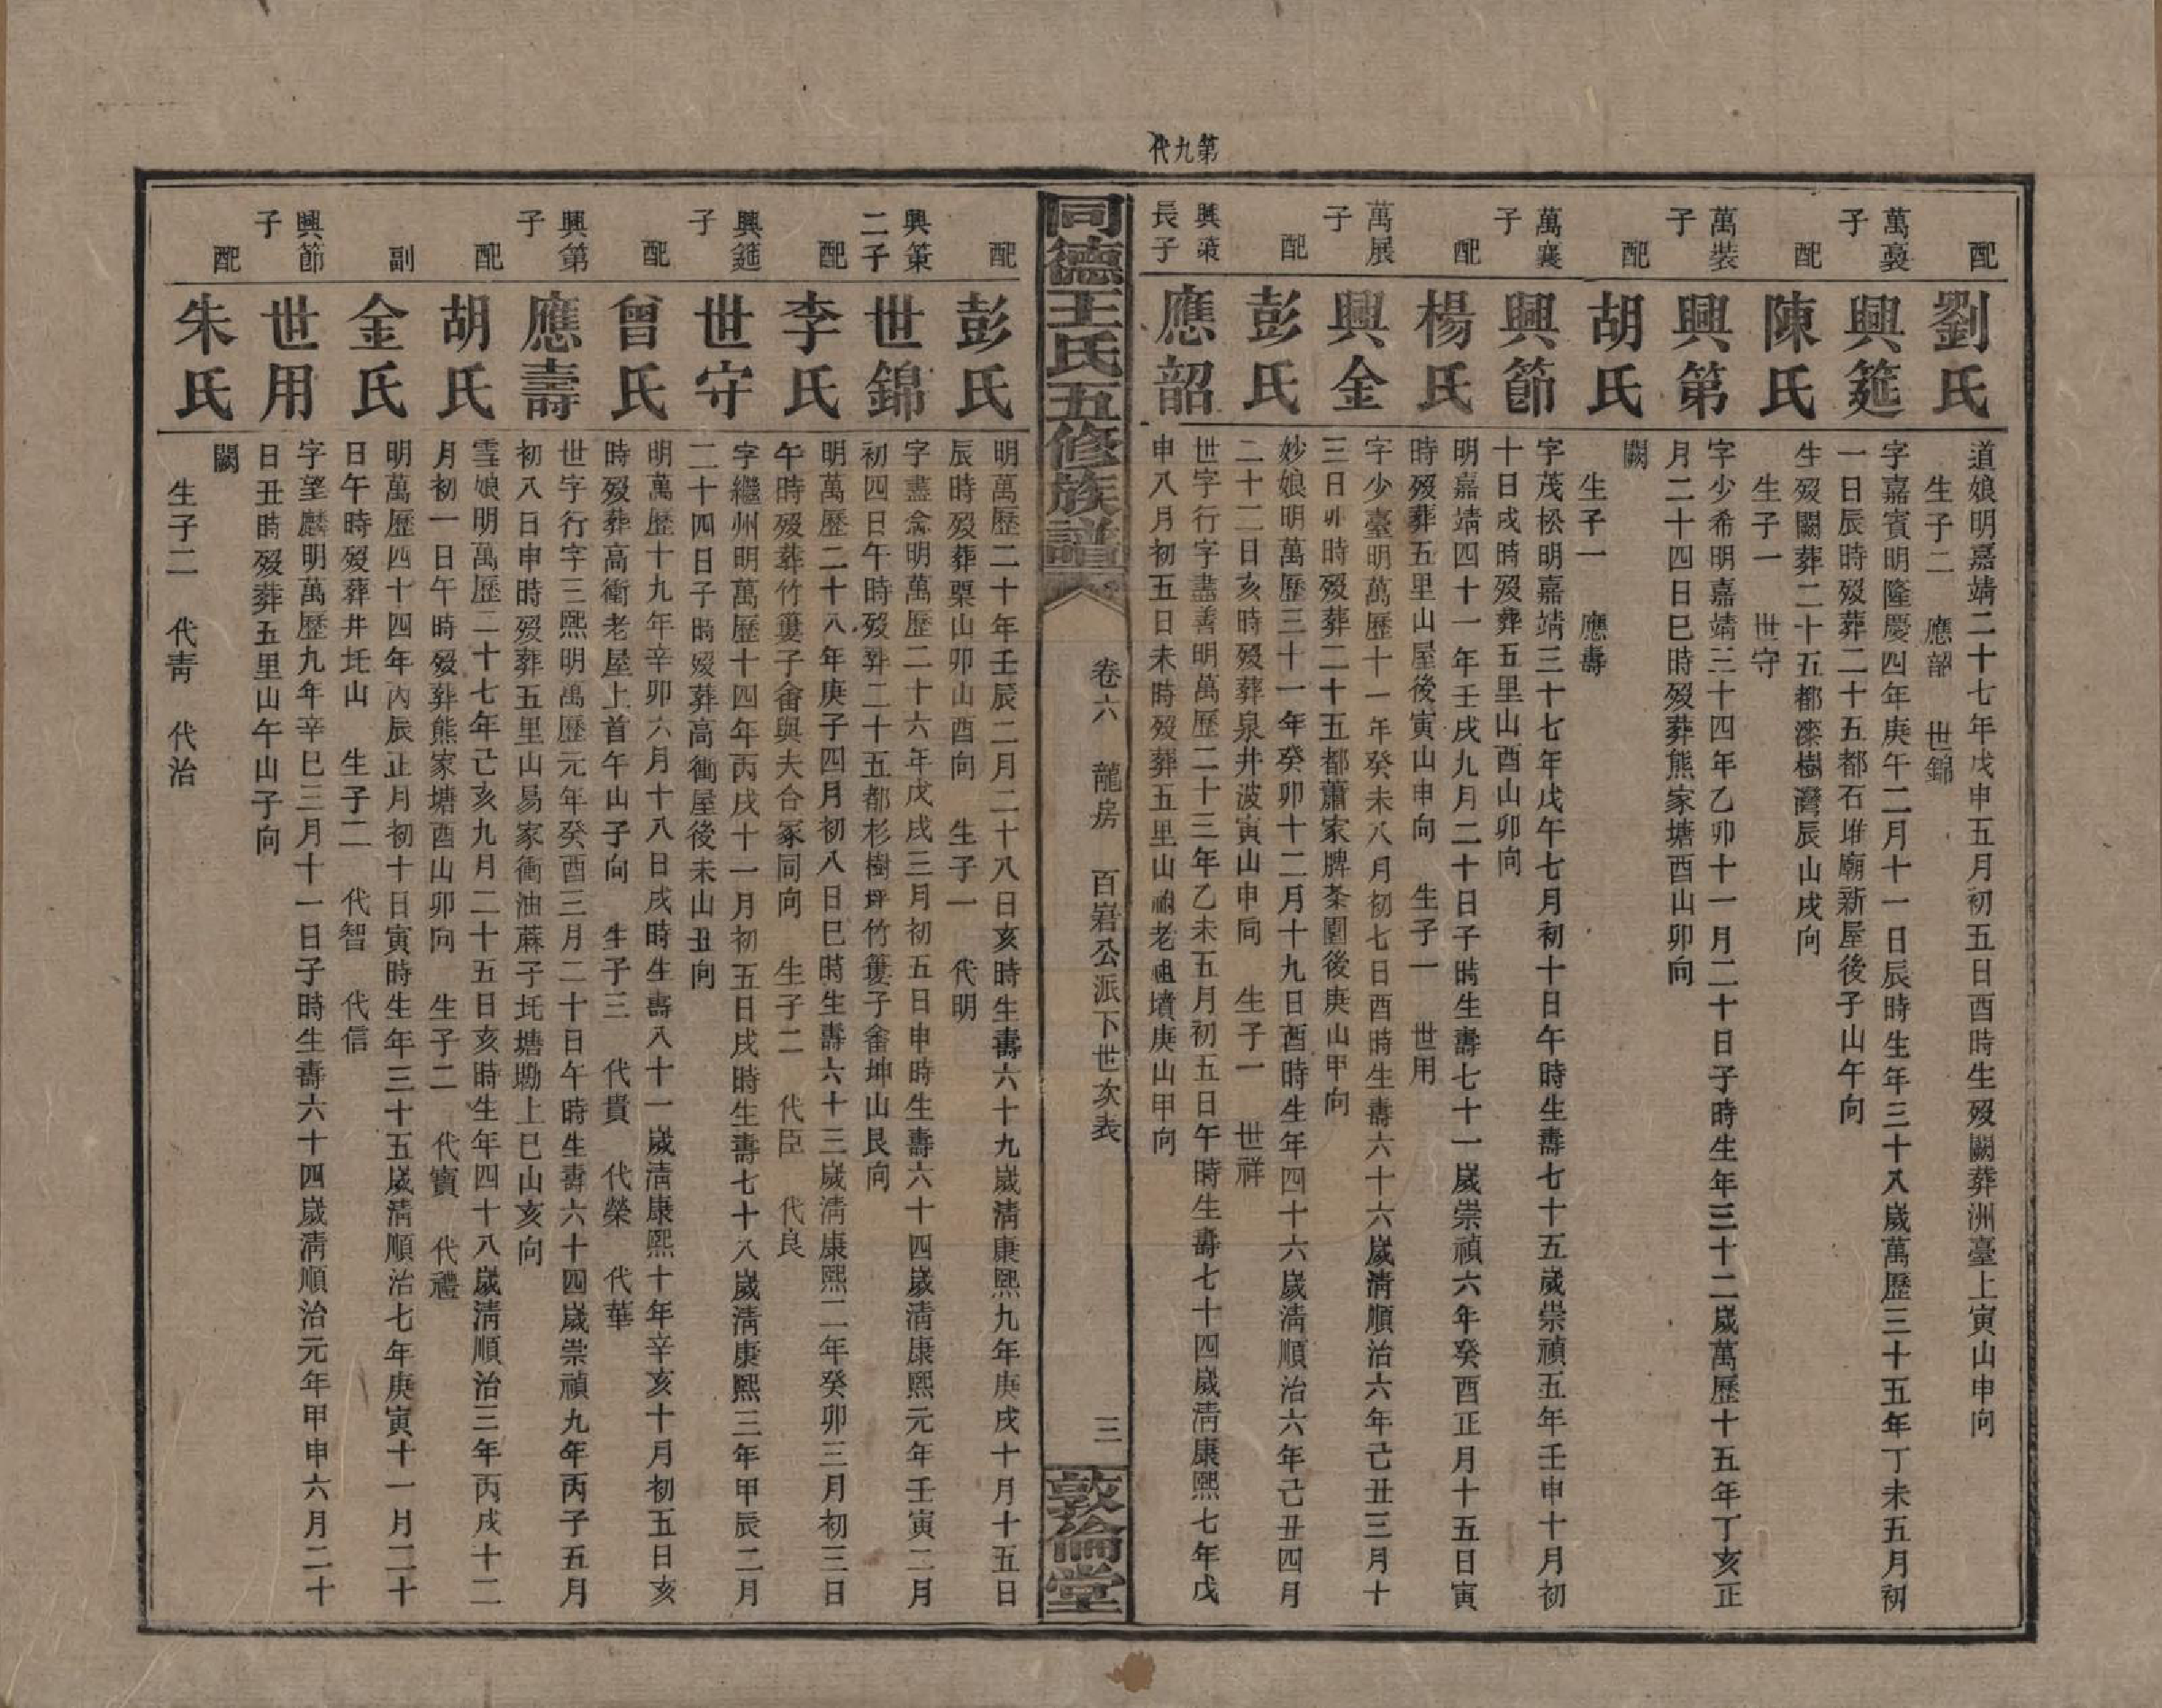 第九代
配
劉氏
道娘明嘉靖二十七年戊申五月初五日酉時生歿闕葬洲臺上寅山申向
生子二 應韶 世錦
萬裦子
興筵
字嘉賓明隆慶四年庚午二月十一日辰時生年三十八歲萬歷三十五年丁未五月初
一日辰時歿葬二十五都石堆廟新屋後子山午向
配
陳氏
生歿闕葬二十五都深樹灣辰山戌向
生子一 世守
萬裝子
興第
字少希明嘉靖三十四年乙卯十一月二十日子時生年三十二歲萬歷十五年丁亥正
月二十四日巳時歿葬熊家塘酉山卯向
配
胡氏
闕
生子一 應壽
萬襄子
興節
字茂松明嘉靖三十七年戊午七月初十日午時生壽七十五歲崇禎五年壬申十月初
十日戌時歿葬五里山酉山卯向
配
楊氏
明嘉靖四十一年壬戌九月二十日子時生壽七十一歲崇禎六年癸酉正月十五日寅
時歿葬五里山屋後寅山申向 生子一 世用
萬展子
興金
字少臺明萬歷十一年癸未八月初七日酉時生壽六十六歲清順治六年己丑三月十
三日卯時歿葬二十五都蕭家牌茶園後庚山甲向
配
彭氏
妙娘明萬歷三十一年癸卯十二月十九日酉時生年四十六歲清順治六年己丑四月
二十二日亥時歿葬泉井波寅山申向 生子一 世祥
興策長子
應韶
世字行字盡善明萬歷二十三年乙未五月初五日午時生壽七十四歲清康熙七年戊
申八月初五日未時歿葬五里山祔老祖墳庚山甲向
同德王氏五修族譜
卷六 龍房 百岩公派下世次表
三
敦倫堂
配
彭氏
明萬歷二十年壬辰二月二十八日亥時生壽六十九歲清康熙九年庚戌十月十五日
辰時歿葬栗山卯山酉向 生子一 代明
興策二子
世錦
字盡侖明萬歷二十六年戊戌三月初五日申時生壽六十四歲清康熙元年壬寅二月
初四日午時歿葬二十五都杉樹坪竹簍子畬坤山艮向
配
李氏
明萬歷二十八年庚子四月初八日巳時生壽六十三歲清康熙二年癸卯三月初三日
午時歿葬竹簍子畬與夫合冢同向 生子二 代臣 代良
興筵子
世守
字繼州明萬歷十四年丙戌十一月初五日戌時生壽七十八歲清康熙三年甲辰二月
二十四日子時歿葬高衝屋後未山丑向
配
曾氏
明萬歷十九年辛卯六月十八日戌時生壽八十一歲清康熙十年辛亥十月初五日亥
時歿葬高衝老屋上首午山子向 生子三 代貴 代榮 代華
興第子
應壽
世字行字三熙明萬歷元年癸酉三月二十日午時生壽六十四歲崇禎九年丙子五月
初八日申時歿葬五里山易家衝油蔴子圫塘墈上巳山亥向
配
胡氏
雪娘明萬歷二十七年己亥九月二十五日亥時生年四十八歲清順治三年丙戌十二
月初一日午時歿葬熊家塘酉山卯向 生子二 代寶 代禮
副
金氏
明萬歷四十四年丙辰正月初十日寅時生年三十五歲清順治七年庚寅十一月二十
日午時歿葬井圫山 生子二 代智 代信
興節子
世用
字望麟明萬歷九年辛巳三月十一日子時生壽六十四歲清順治元年甲申六月二十
日丑時歿葬五里山午山子向
配
朱氏
闕
生子二 代靑 代治